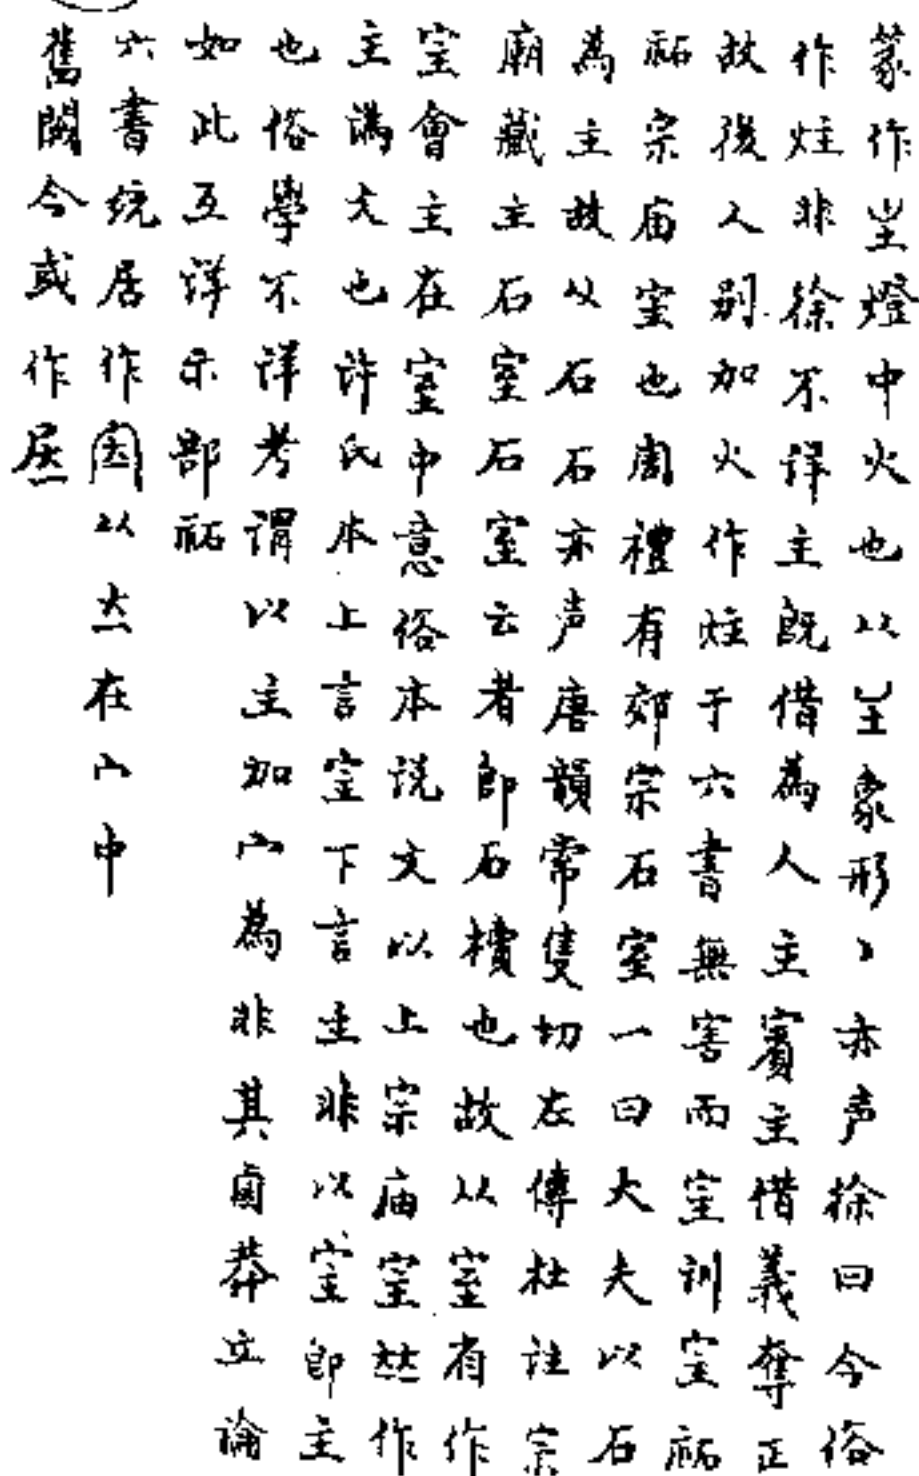 篆作𡉚燈中火也从𡉚象形丶亦声徐曰今俗
作炷非徐不详主旣借為人主賓主借義奪正
故後人别加火作炷于六書無害而宔訓宔祏
祏宗庙宔也周禮有郊宗石室一曰大夫以石
為主故从石石亦声唐韻常隻切左傳杜註宗
廟藏主石室石室云者即石櫝也故从室有作
室會主在室中意俗本说文以上宗庙宔 作
主譌大也许氏本上言宔下言主非以宔即主
也俗學不详考謂以主加宀為非其鹵莽立論
如此互详示部祏
六書统居作 从 在宀中
舊闕今或作